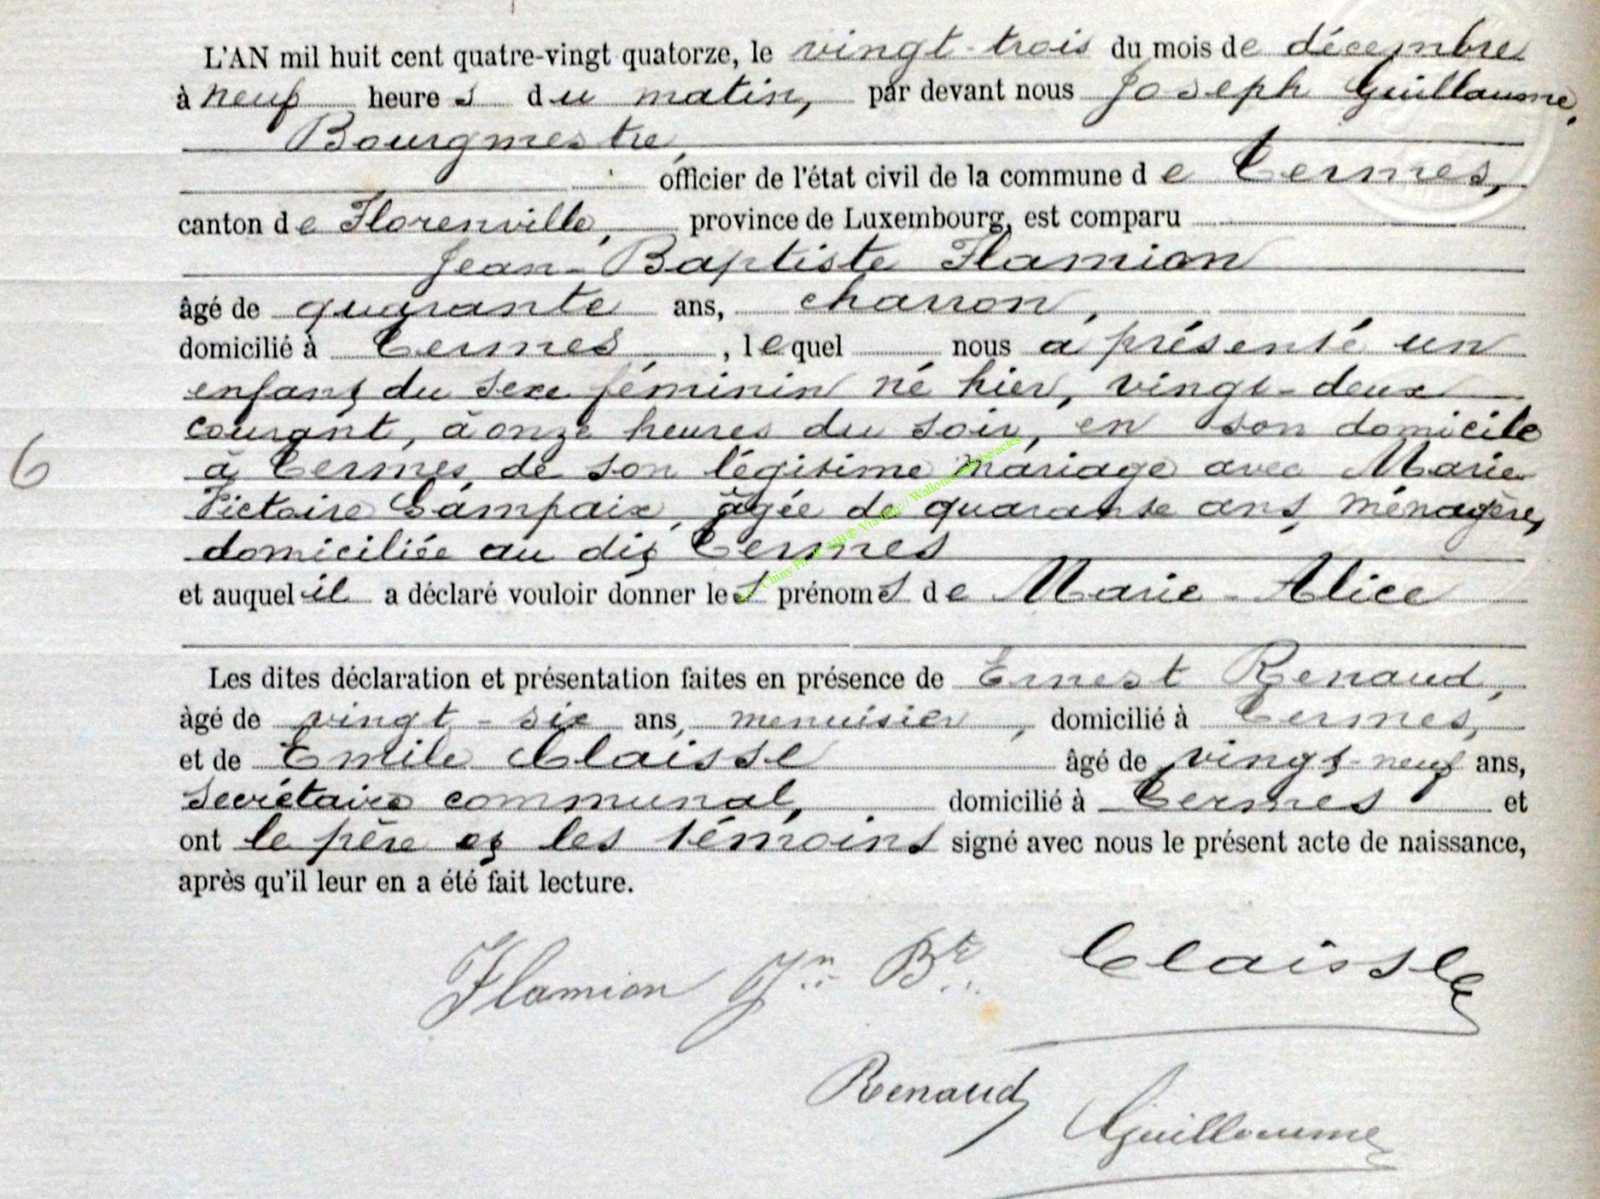 L'AN mil huit cent quatre-vingt quatorze, le vingt-trois du mois de décembre
à neuf heures du matin, par devant nous Joseph Guillaume,
Bourgmestre,
officier de l'état civil de la commune de Termes,
canton de Florenville, province de Luxembourg, est comparu
Jean-Baptiste Flamion
âgé de quarante ans, charron,
domicilié à Termes, lequel nous a présenté un
enfant du sexe féminin né hier, vingt-deux
courant, à onze heures du soir, en son domicile
à Termes, de son légitime mariage avec Marie
Victoire Lampaix, âgée de quarante ans, ménagère,
domiciliée au dit Termes
et auquel il a déclaré vouloir donner les prénoms de Marie-Alice
Les dites déclaration et présentation faites en présence de Ernest Renaud,
âgé de vingt-six ans, menuisier, domicilié à Termes,
6
et de Emile Claisse âgé de vingt-neuf ans,
secrétaire communal, domicilié à Termes et
ont le père et les témoins signé avec nous le présent acte de naissance,
après qu'il leur en a été fait lecture.
Flamion Jn Bte Claisse
Renaud Guillaume